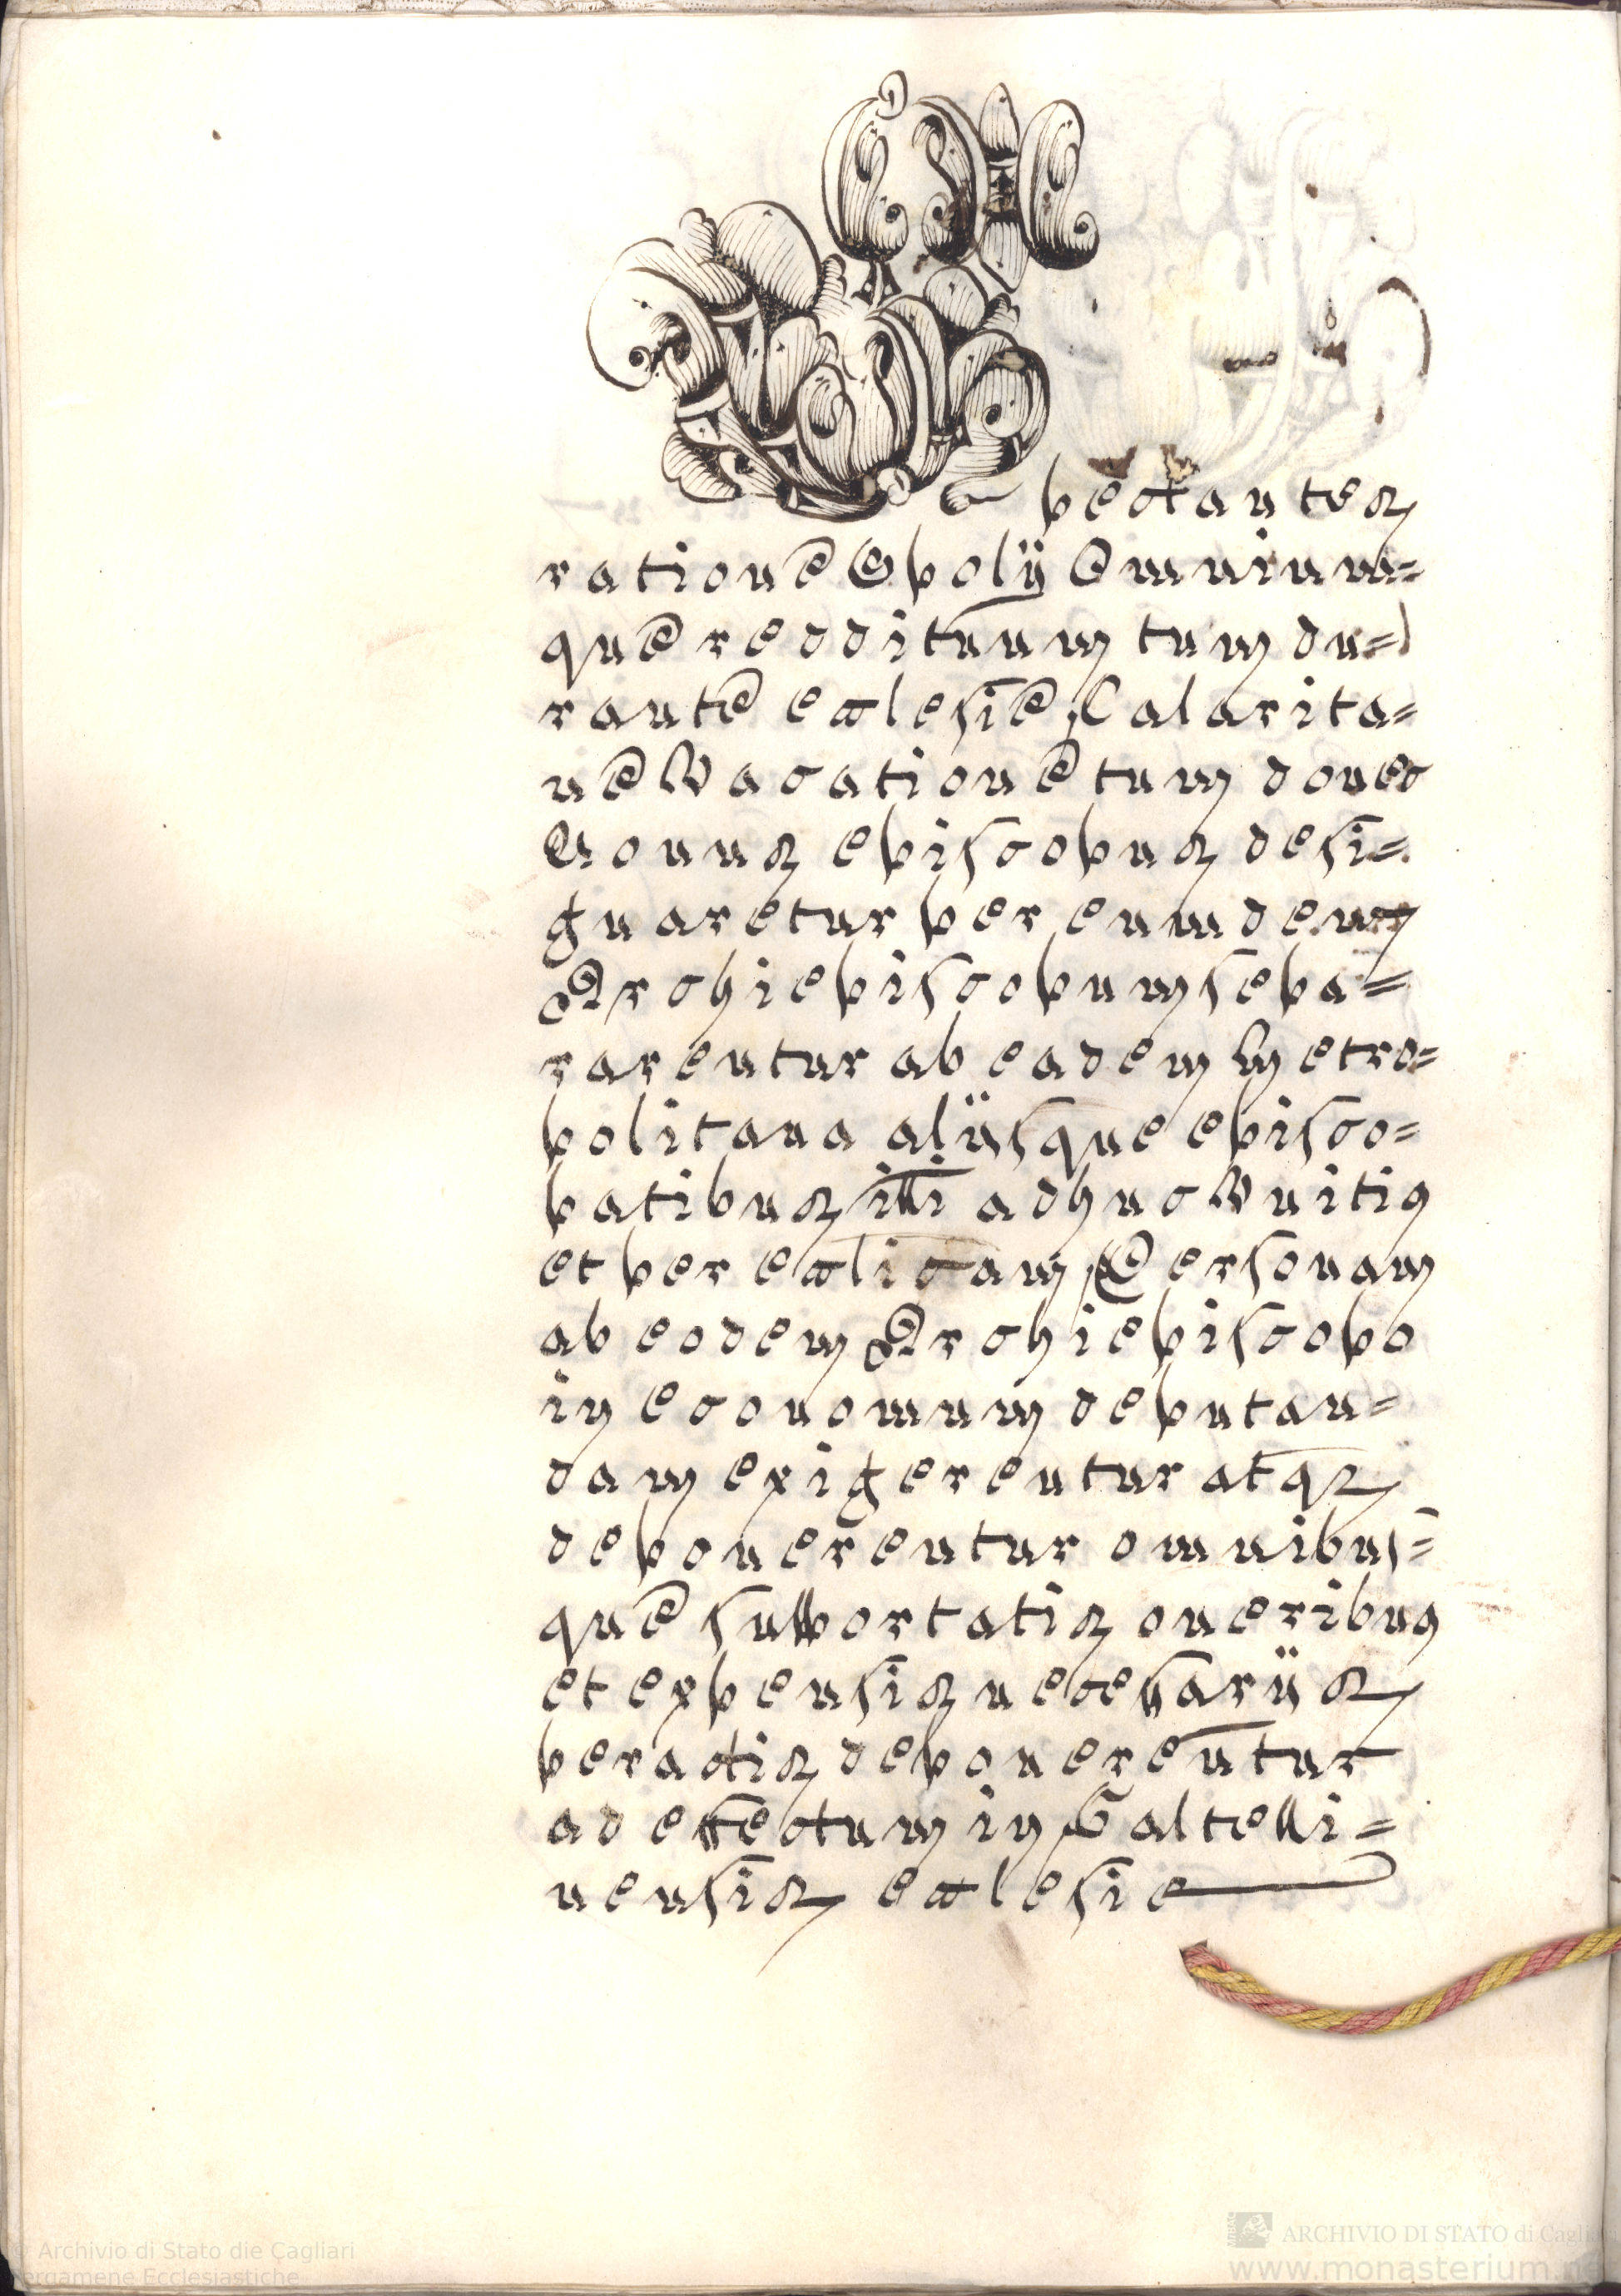 Spectantes
ratione Spolij Omnium=
que reddituum tum du=
rante ecclesie Calarita=
ne Vacatione tum donec
Novus episcopus desi=
gnaretur per eumdem
Archiepiscopum sepa=
rarentur ab eadem Metro=
politana alijsque episco=
patibus illi adhuc Vnitis
et per eccl̄icam Personam
ab eodem Archiepiscopo
in economum deputan=
dam exigerentur atq3
deponerentur omnibus=
que supportatis oneribus
et expensis necessarijs
peractis deponerentur
ad effectum in Galtelli=
nensis ecclesie
© Archivio di Stato die Cagliari
Pergamene Ecclesiastiche
ARCHIVIO DI STATO di Cagli
www.monasterium.ne